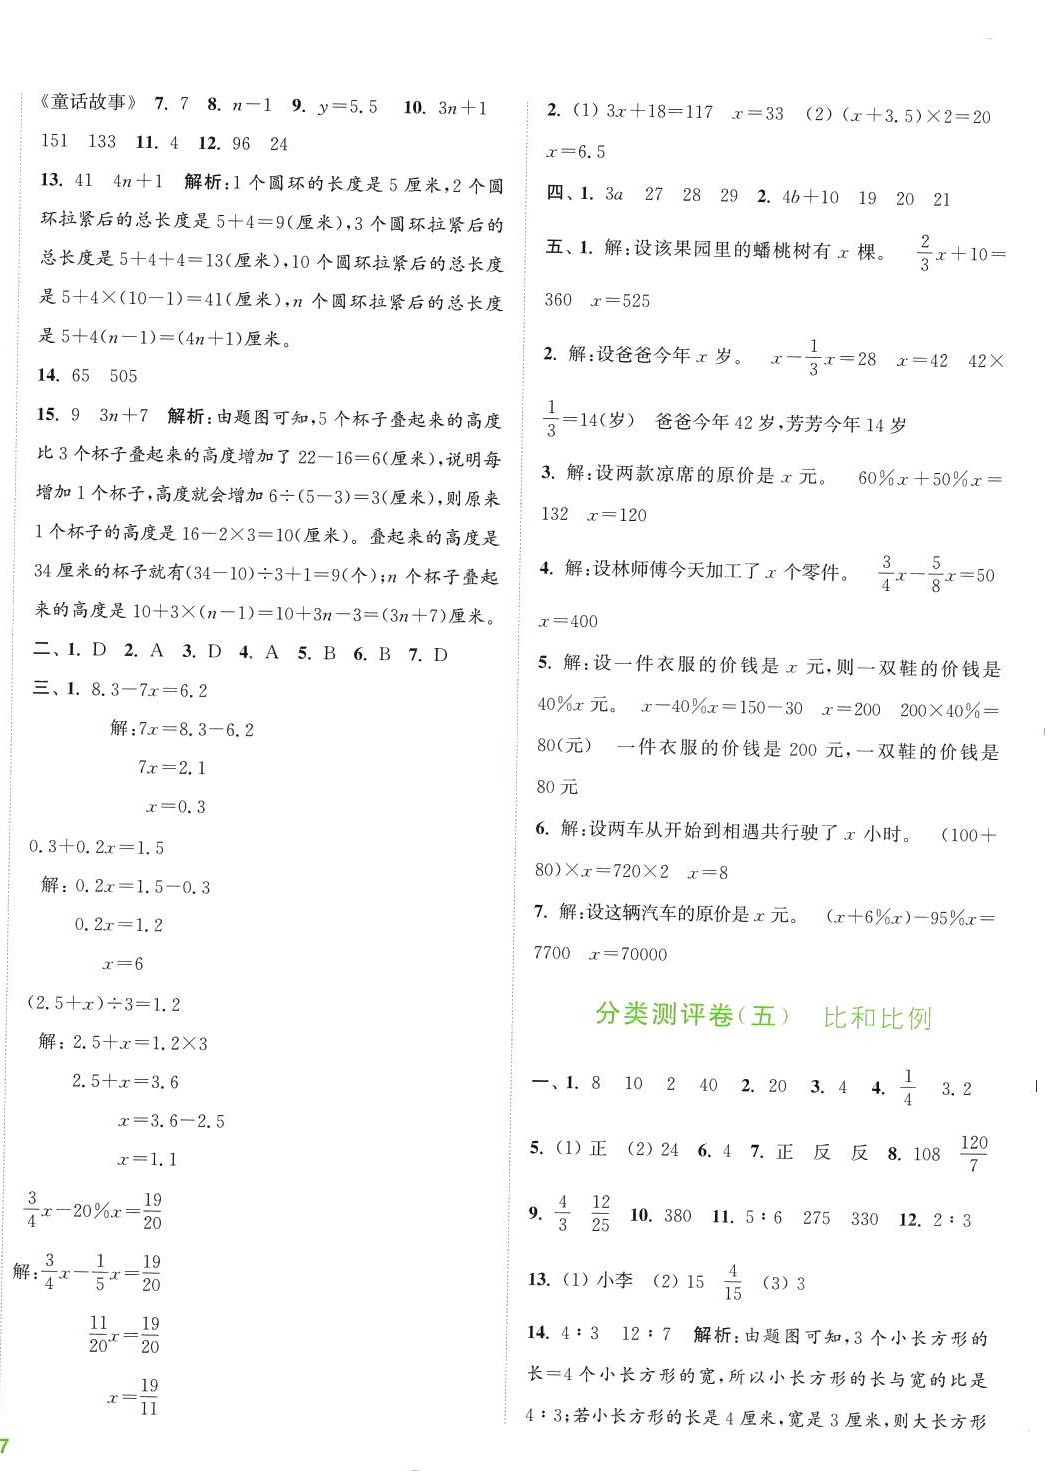 《童话故事》 7. 7 8. n－1 9. y＝5.5 10. 3n＋1
151 133 11. 4 12. 96 24
13. 41 4n＋1 解析:1 个圆环的长度是 5 厘米,2 个圆
环拉紧后的总长度是 5＋4＝9(厘米),3 个圆环拉紧后的
总长度是 5＋4＋4＝13(厘米),10 个圆环拉紧后的总长度
是 5＋4×(10－1)＝41(厘米),n 个圆环拉紧后的总长度
是 5＋4(n－1)＝(4n＋1)厘米。
14. 65 505
15. 9 3n＋7 解析:由题图可知,5 个杯子叠起来的高度
比 3 个杯子叠起来的高度增加了 22－16＝6(厘米),说明每
增加 1 个杯子,高度就会增加 6÷(5－3)＝3(厘米),则原来
1 个杯子的高度是 16－2×3＝10(厘米)。叠起来的高度是
34 厘米的杯子就有(34－10)÷3＋1＝9(个);n 个杯子叠起
来的高度是 10＋3×(n－1)＝10＋3n－3＝(3n＋7)厘米。
二、1. D 2. A 3. D 4. A 5. B 6. B 7. D
三、1. 8.3－7x＝6.2
解:7x＝8.3－6.2
7x＝2.1
x＝0.3
0.3＋0.2x＝1.5
解: 0.2x＝1.5－0.3
0.2x＝1.2
x＝6
(2.5＋x)÷3＝1.2
解: 2.5＋x＝1.2×3
2.5＋x＝3.6
x＝3.6－2.5
x＝1.1
3/4x－20%x＝19/20
解:3/4x－1/5x＝19/20
11/20x＝19/20
x＝19/11
7
2. (1) 3x＋18＝117 x＝33 (2) (x＋3.5)×2＝20
x＝6.5
四、1. 3a 27 28 29 2. 4b＋10 19 20 21
五、1. 解:设该果园里的蟠桃树有 x 棵。 2/3x＋10＝
360 x＝525
2. 解:设爸爸今年 x 岁。 x－1/3x＝28 x＝42 42×
1/3＝14(岁) 爸爸今年 42 岁,芳芳今年 14 岁
3. 解:设两款凉席的原价是 x 元。 60%x＋50%x＝
132 x＝120
4. 解:设林师傅今天加工了 x 个零件。 3/4x－5/8x＝50
x＝400
5. 解:设一件衣服的价钱是 x 元,则一双鞋的价钱是
40%x 元。 x－40%x＝150－30 x＝200 200×40%＝
80(元) 一件衣服的价钱是 200 元,一双鞋的价钱是
80 元
6. 解:设两车从开始到相遇共行驶了 x 小时。 (100＋
80)×x＝720×2 x＝8
7. 解:设这辆汽车的原价是 x 元。 (x＋6%x)－95%x＝
7700 x＝70000
分类测评卷(五) 比和比例
一、1. 8 10 2 40 2. 20 3. 4 4. 1/4 3.2
5. (1) 正 (2) 24 6. 4 7. 正 反 反 8. 108 120/7
9. 4/3 12/25 10. 380 11. 5∶6 275 330 12. 2∶3
13. (1) 小李 (2) 15 4/15 (3) 3
14. 4∶3 12∶7 解析:由题图可知,3 个小长方形的
长＝4 个小长方形的宽,所以小长方形的长与宽的比是
4∶3;若小长方形的长是 4 厘米,宽是 3 厘米,则大长方形